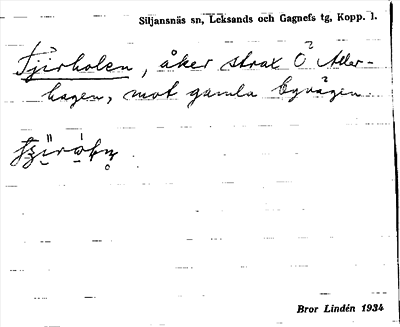 Siljansnäs sn, Leksands och Gagnefs tg, Kopp. l.
Fjirholen, åker strax Ö Aller-
hagen, mot gamla byvägen
Bror Lindén 1934